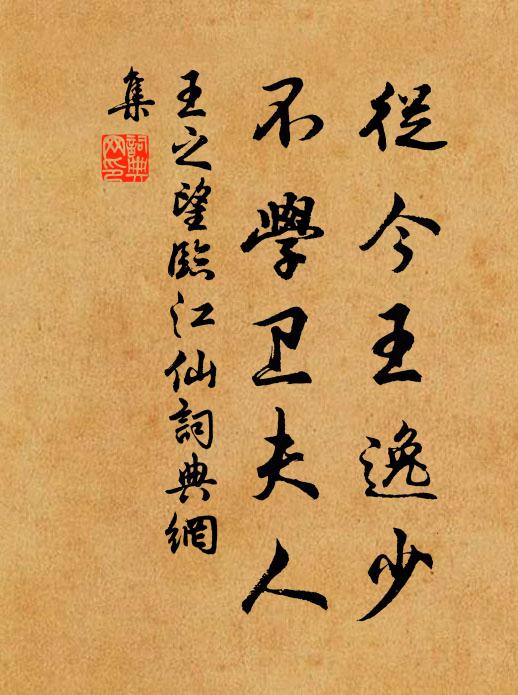 從今王逸少
不學卫夫人
王之望臨江仙詞典網
集
詞典網印